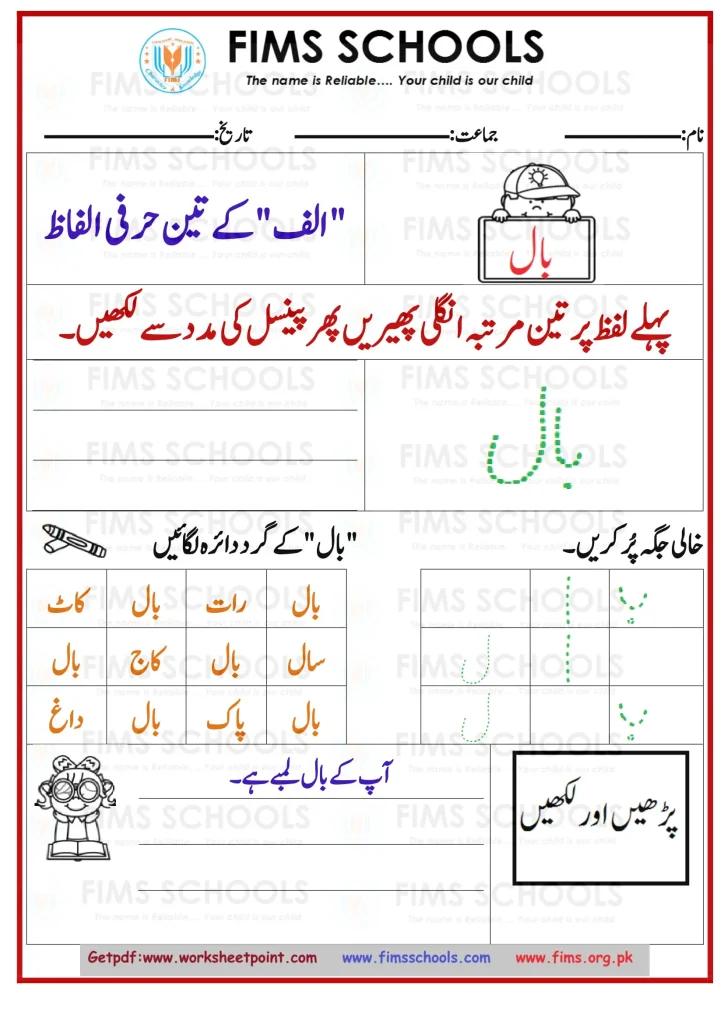 FIMS SCHOOLS
The name is Reliable.... Your child is our child
FIMS
نام: جماعت: تاریخ:
بال
"الف" کے تین حرفی الفاظ
پہلے لفظ پر تین مرتبہ انگلی پھیریں پھر پینسل کی مدد سے لکھیں۔
بال
خالی جگہ پُر کریں۔
"بال" کے گرد دائرہ لگائیں
ب ا
ا ل
ب ل
بال رات بال کاٹ
سال بال کاج بال
بال پاک بال داغ
پڑھیں اور لکھیں
آپ کے بال لمبے ہے۔
Getpdf:www.worksheetpoint.com www.fimsschools.com www.fims.org.pk